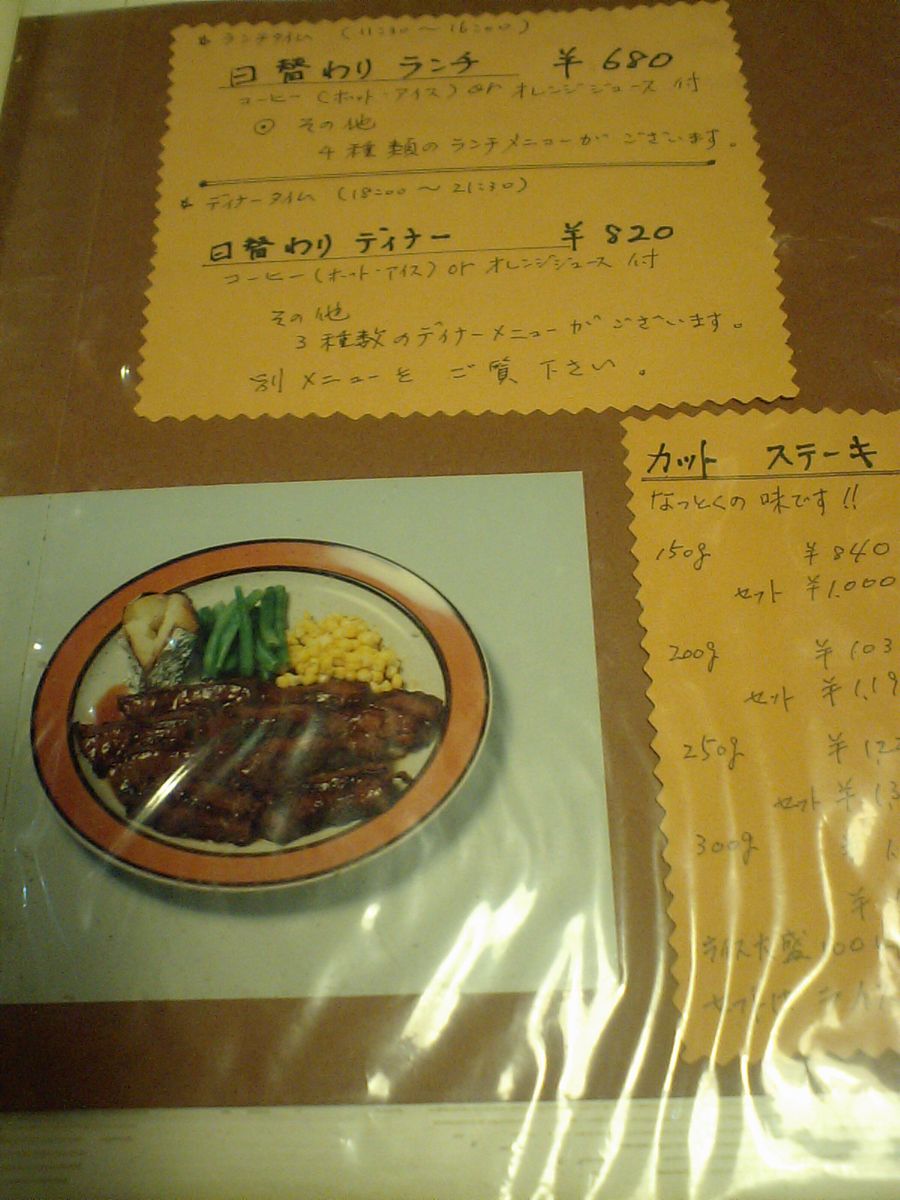 * ランチタイム (11:30 〜 16:00)
日替わり ランチ ¥680
コーヒー (ホット・アイス) or オレンジジュース 付
◉ その他
4種類のランチメニューがございます。
* ディナータイム (18:00 〜 21:30)
日替わり ディナー ¥820
コーヒー (ホット・アイス) or オレンジジュース 付
その他
3種数のディナーメニューがございます。
別メニューをご覧下さい。
カット ステーキ
なっとくの味です!!
150g ¥840
セット ¥1.000
200g ¥1.03
セット ¥1,19
250g ¥1,22
セット ¥1,3
300g ¥1,
¥
ライス大盛100
セットは